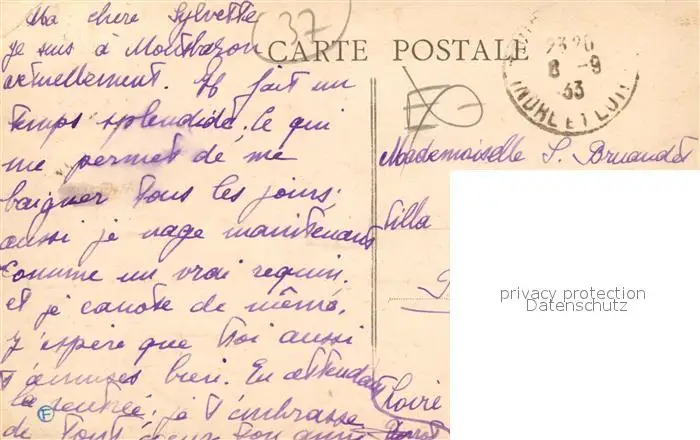 Ma chère Sylvette
je suis à Montbazon
actuellement. Il fait un
temps splendide, ce qui
me permet de me
baigner tous les jours,
aussi je nage maintenant
comme un vrai requin,
et je canote de même.
J'espère que toi aussi
t'amuses bien. En attendant
la rentrée, je t'embrasse
de tout coeur ton amie
37
CARTE POSTALE
2320
8 -9
33
INDRE ET LOIRE
Mademoiselle S. Bruandet
Villa
Loire
privacy protection
Datenschutz
F